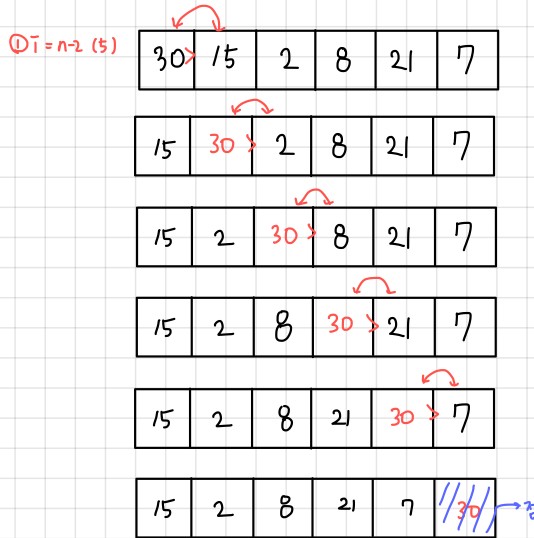 ① i = n-2 (5) 30 > 15 2 8 21 7
15 30 > 2 8 21 7
15 2 30 > 8 21 7
15 2 8 30 > 21 7
15 2 8 21 30 > 7
15 2 8 21 7 30